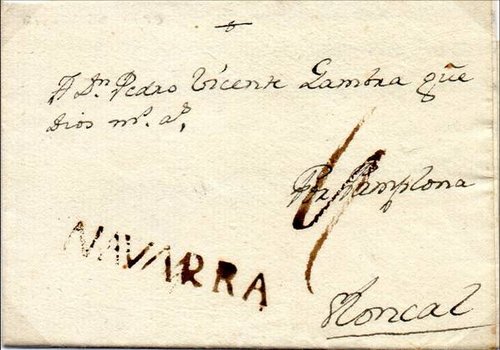 A Dn. Pedro Vicente Gambra que
Dios ms. as.
Por Pamplona
NAVARRA
Roncal